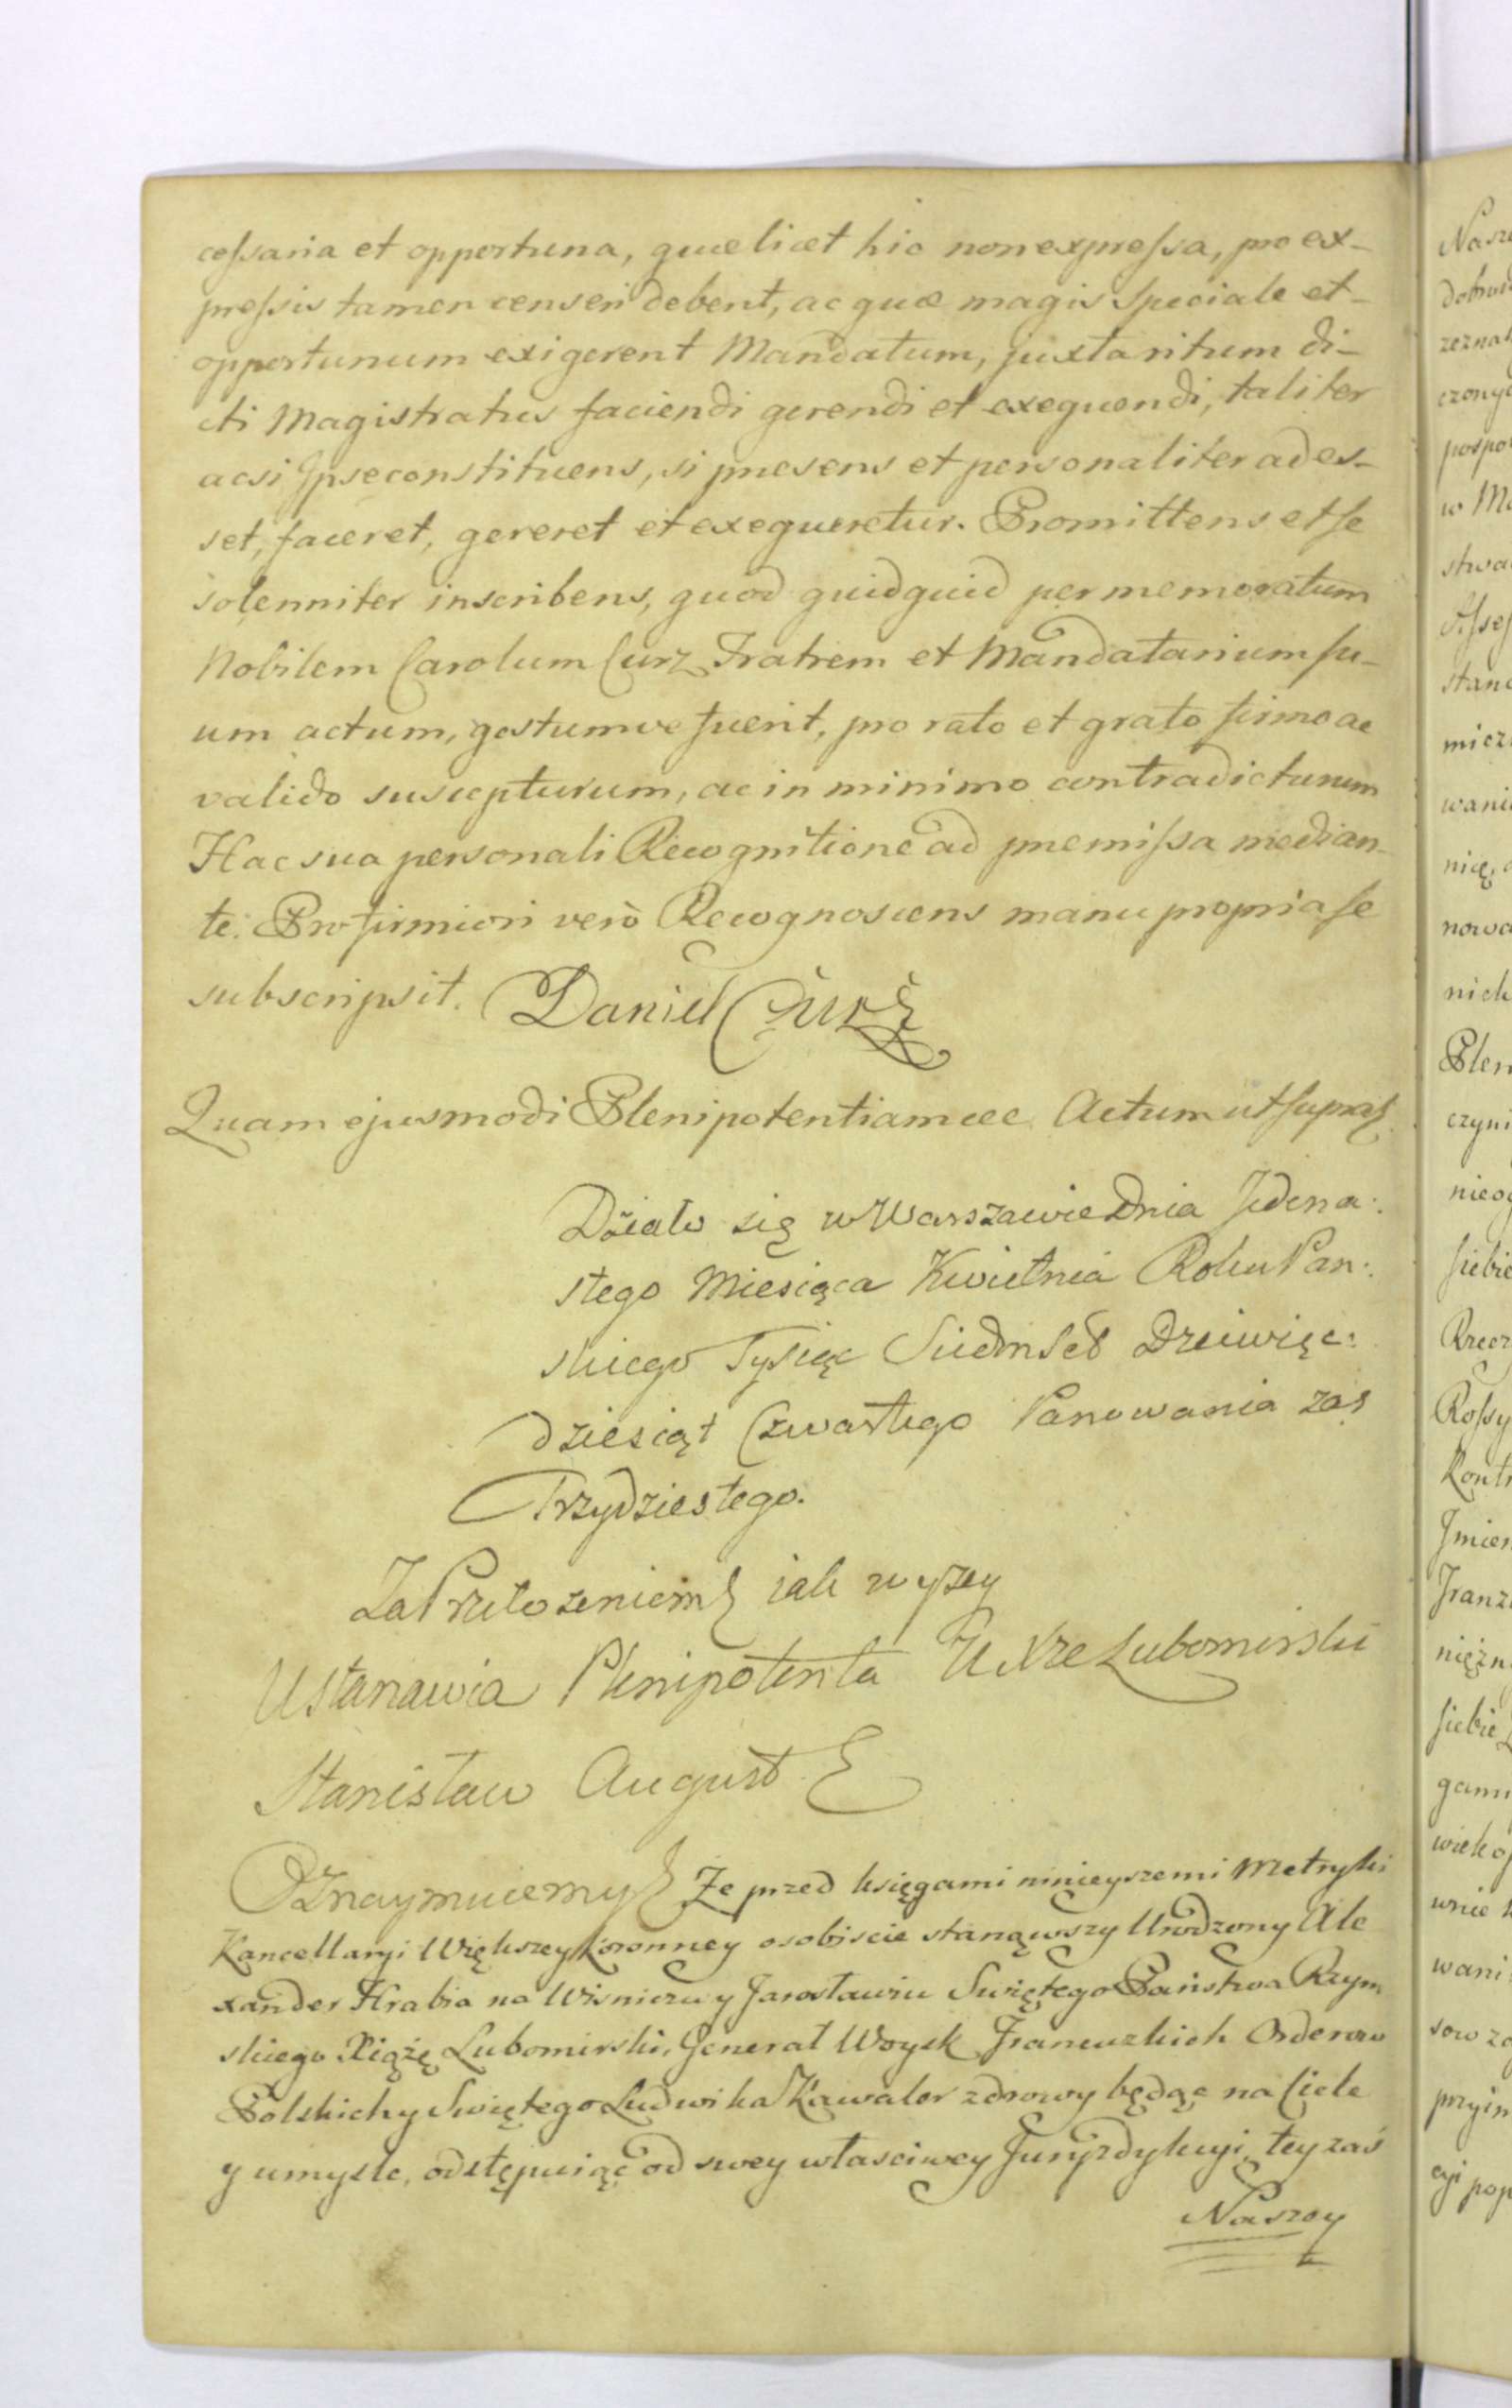 cessaria et opportuna, quæ licet hic non expressa, pro ex-
pressis tamen censeri debent, ac quæ magis Speciale et
opportunum exigerent Mandatum, juxta ritum di-
cti Magistratus faciendi gerendi et exequendi, taliter
acsi Ipse constituens, si præsens et personaliter ades-
set, faceret, gereret et exequeretur. Promittens et se
solenniter inscribens, quod quidquid per memoratum
Nobilem Carolum Curz Fratrem et Mandatarium su-
um actum, gestumve fuerit, pro rato et grato firmo ac
valido suscepturum, ac in minimo contradicturum
Hac sua personali Recognitione ad præmissa median-
te. Pro firmiori verò Recognoscens manu propria se
subscripsit. Daniel Curz
Quam ejusmodi Plenipotentiam Actum ut supra
Działo się w Warszawie Dnia Jedena:
stego Miesiąca Kwietnia Roku Pań:
skiego Tysiąc Siedmset Dziewięć:
dziesiąt Czwartego Panowania zaś
Trzydziestego.
Za Przełożeniem jak wyżey
Ustanawia Plenipotenta U Xże Lubomirski
Stanisław August
Oznaymuiemy Ze przed księgami ninieyszemi Metryki
Kancellaryi Większey Koronney osobiscie stanąwszy Urodzony Ale
xander Hrabia na Wisniczu y Jarosławiu Swiętego Państwa Rzym
skiego Xiążę Lubomirski, Generał Woysk Francuzkich Orderow
Polskich y Swiętego Ludwika Kawaler zdrowy będąc na Ciele
y umysle, odstępuiąc od swey własciwey Juryzdykcyi, tey zaś
Naszey
Nasze
zeznał
w
Plen
czyni
siebie
Kontr
siebie
wani